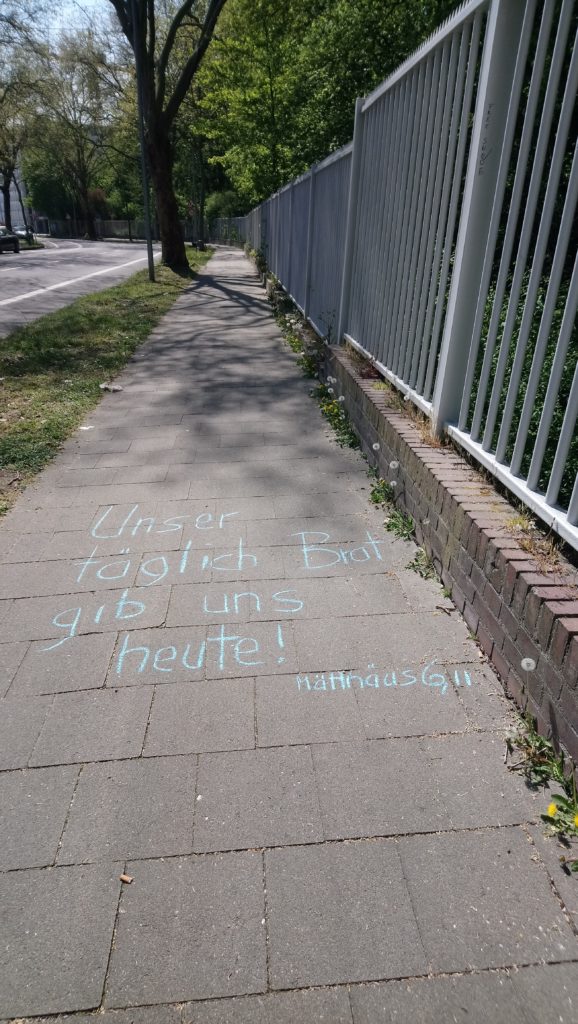 Unser
täglich Brot
gib uns
heute!
Matthäus 6,11